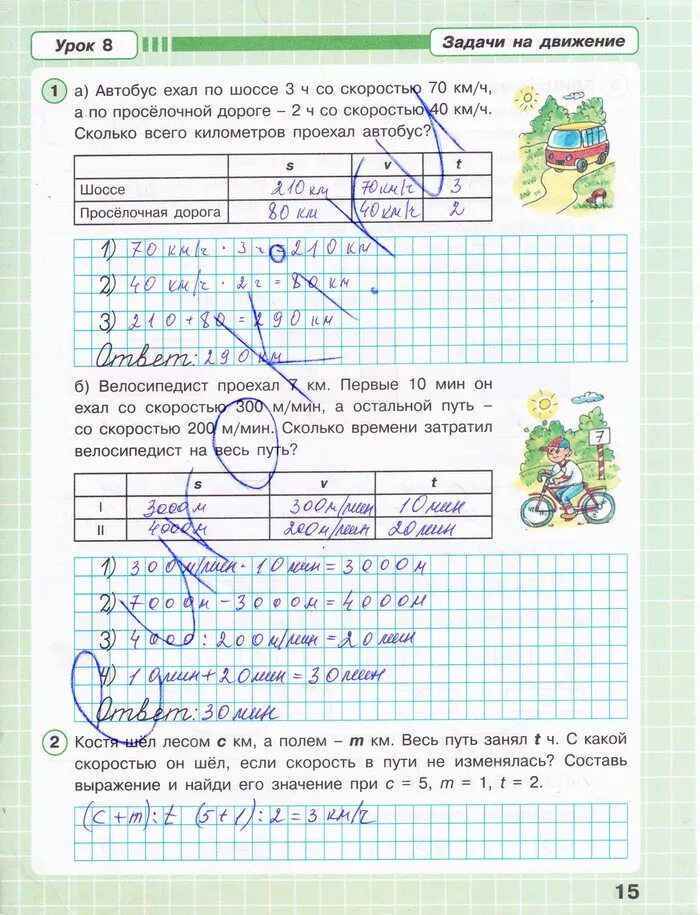 Урок 8
Задачи на движение
1 а) Автобус ехал по шоссе 3 ч со скоростью 70 км/ч,
а по просёлочной дороге – 2 ч со скоростью 40 км/ч.
Сколько всего километров проехал автобус?
s v t
Шоссе 210 км 70 км/ч 3
Просёлочная дорога 80 км 40 км/ч 2
1) 70 км/ч · 3 ч = 210 км
2) 40 км/ч · 2 ч = 80 км
3) 210 + 80 = 290 км
Ответ: 290 км
б) Велосипедист проехал 7 км. Первые 10 мин он
ехал со скоростью 300 м/мин, а остальной путь –
со скоростью 200 м/мин. Сколько времени затратил
велосипедист на весь путь?
7
s v t
I 3000м 300м/мин 10мин
II 4000м 200м/мин 20мин
1) 300м/мин · 10мин = 3000м
2) 7000м - 3000м = 4000м
3) 4000 : 200м/мин = 20мин
4) 10мин + 20мин = 30мин
Ответ: 30мин
2 Костя шёл лесом c км, а полем – m км. Весь путь занял t ч. С какой
скоростью он шёл, если скорость в пути не изменялась? Составь
выражение и найди его значение при c = 5, m = 1, t = 2.
(c + m) : t (5 + 1) : 2 = 3 км/ч
15